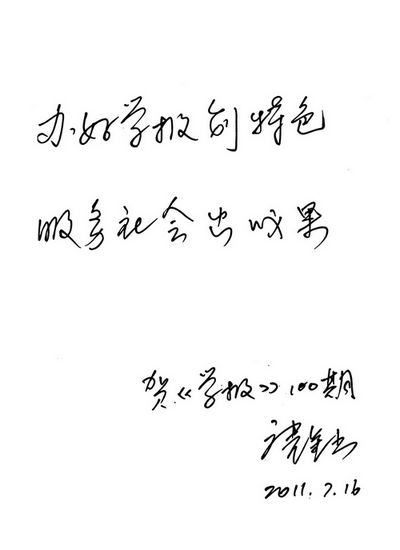 办好学报创特色
服务社会出成果
贺《学报》100期
2011.7.16